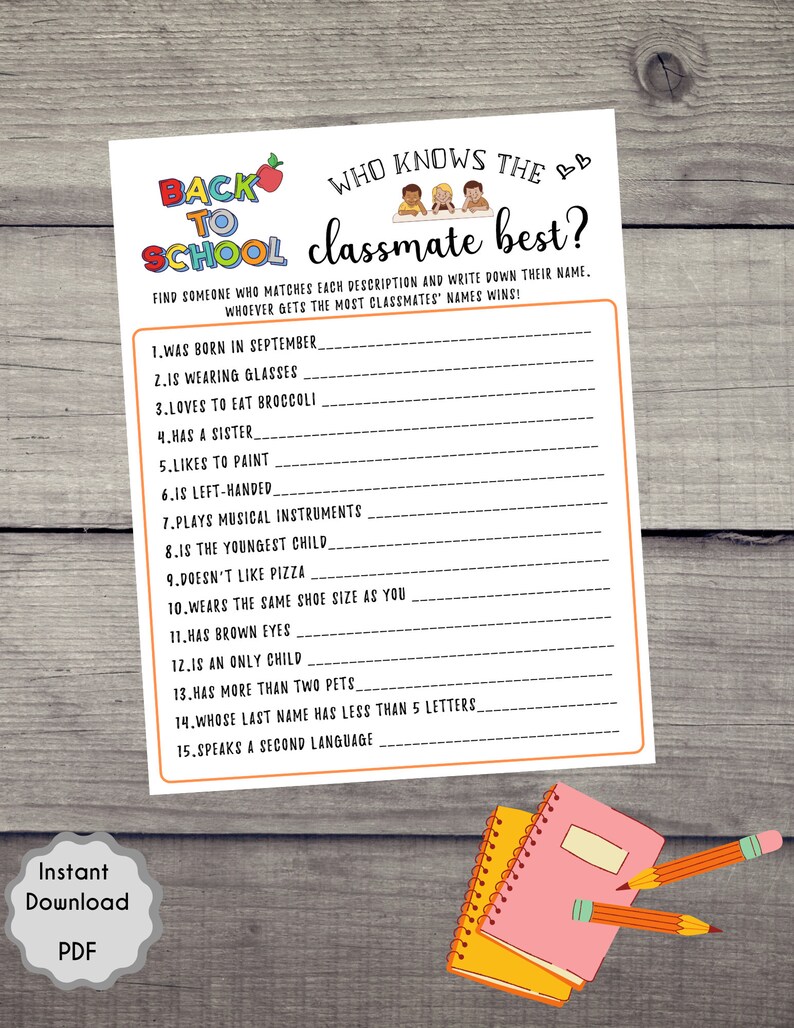 BACK
TO
SCHOOL
WHO KNOWS THE
classmate best?
FIND SOMEONE WHO MATCHES EACH DESCRIPTION AND WRITE DOWN THEIR NAME.
WHOEVER GETS THE MOST CLASSMATES' NAMES WINS!
1.WAS BORN IN SEPTEMBER____________________________
2.IS WEARING GLASSES ______________________________
3.LOVES TO EAT BROCCOLI ____________________________
4.HAS A SISTER___________________________________
5.LIKES TO PAINT _________________________________
6.IS LEFT-HANDED__________________________________
7.PLAYS MUSICAL INSTRUMENTS ________________________
8.IS THE YOUNGEST CHILD____________________________
9.DOESN'T LIKE PIZZA ______________________________
10.WEARS THE SAME SHOE SIZE AS YOU ____________________
11.HAS BROWN EYES ________________________________
12.IS AN ONLY CHILD _______________________________
13.HAS MORE THAN TWO PETS__________________________
14.WHOSE LAST NAME HAS LESS THAN 5 LETTERS______________
15.SPEAKS A SECOND LANGUAGE ________________________
Instant
Download
PDF